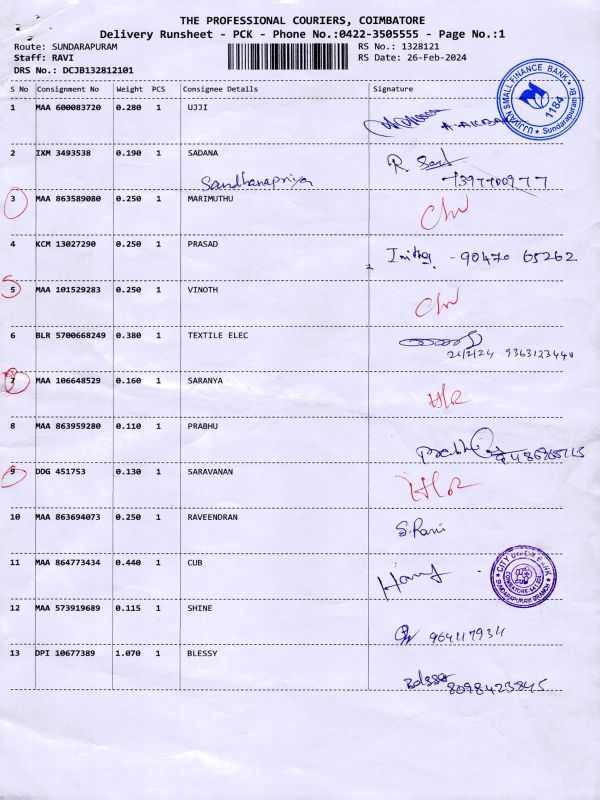 THE PROFESSIONAL COURIERS, COIMBATORE
Delivery Runsheet - PCK - Phone No.:0422-3505555 - Page No.:1
Route: SUNDARAPURAM RS No.: 1328121
Staff: RAVI RS Date: 26-Feb-2024
DRS No.: DCJB132812101
S No Consignment No Weight PCS Consignee Details Signature
1 MAA 600083720 0.280 1 UJJI
UJJIVAN SMALL FINANCE BANK
1184
Sundarapuram Br
2 IXM 3493538 0.190 1 SADANA
Sandhanapriya
3 MAA 863589080 0.250 1 MARIMUTHU
4 KCM 13027290 0.250 1 PRASAD - 90470 65262
5 MAA 101529283 0.250 1 VINOTH
6 BLR 5700668249 0.380 1 TEXTILE ELEC
9363123440
7 MAA 106648529 0.160 1 SARANYA
8 MAA 863959280 0.110 1 PRABHU
9 DDG 451753 0.130 1 SARAVANAN
10 MAA 863694073 0.250 1 RAVEENDRAN S.Rani
11 MAA 864773434 0.440 1 CUB
CITY UNION BANK
12 MAA 573919689 0.115 1 SHINE
13 DPI 10677389 1.070 1 BLESSY
8098423845